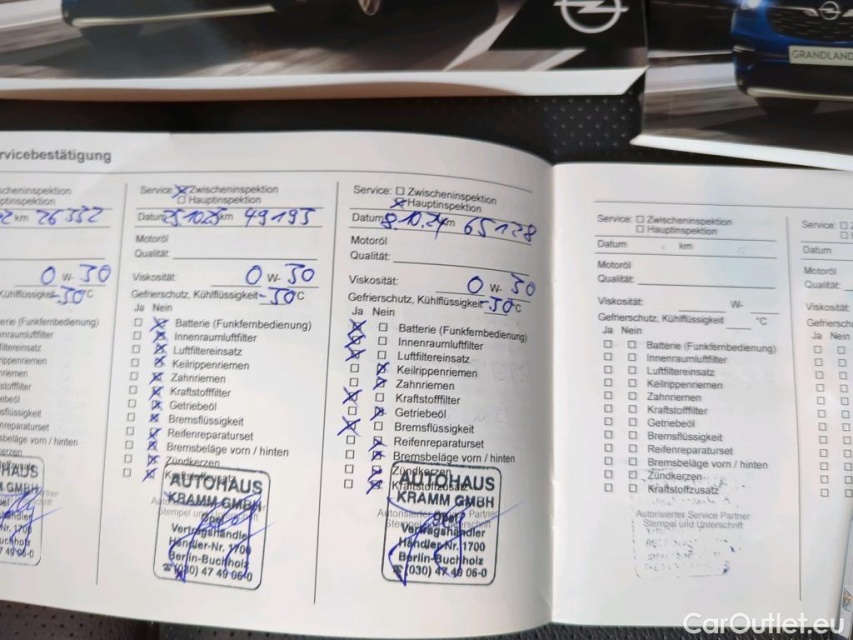 GRANDLAND
rvicebestätigung
scheninspektion
ptinspektion
km 26 332
0 W- 30
Kühlflüssigkeit -30 °C
erie (Funkfernbedienung)
nraumluftfilter
filtereinsatz
rippenriemen
riemen
stofffilter
ebeöl
sflüssigkeit
nreparaturset
sbeläge vorn / hinten
Service: Zwischeninspektion
Hauptinspektion
Datum km 49195
Motoröl
Qualität:
Viskosität: 0 W- 30
Gefrierschutz, Kühlflüssigkeit -30 °C
Ja Nein
Batterie (Funkfernbedienung)
Innenraumluftfilter
Luftfiltereinsatz
Keilrippenriemen
Zahnriemen
Kraftstofffilter
Getriebeöl
Bremsflüssigkeit
Reifenreparaturset
Bremsbeläge vorn / hinten
Zündkerzen
AUTOHAUS
KRAMM GMBH
Opel
Vertragshändler
Händler-Nr. 1700
Berlin-Buchholz
☎ (030) 47 49 06-0
Service: Zwischeninspektion
Hauptinspektion
Datum 8.10.24 km 65128
Motoröl
Qualität:
Viskosität: 0 W- 30
Gefrierschutz, Kühlflüssigkeit -30 °C
Ja Nein
Batterie (Funkfernbedienung)
Innenraumluftfilter
Luftfiltereinsatz
Keilrippenriemen
Zahnriemen
Kraftstofffilter
Getriebeöl
Bremsflüssigkeit
Reifenreparaturset
Bremsbeläge vorn / hinten
Zündkerzen
Kraftstoffzusatz
Autorisierter Service Partner
AUTOHAUS
KRAMM GMBH
Opel
Vertragshändler
Händler-Nr. 1700
Berlin-Buchholz
☎ (030) 47 49 06-0
Service: Zwischeninspektion
Hauptinspektion
Datum km
Motoröl
Qualität:
Viskosität: W-
Gefrierschutz, Kühlflüssigkeit °C
Ja Nein
Batterie (Funkfernbedienung)
Innenraumluftfilter
Luftfiltereinsatz
Keilrippenriemen
Zahnriemen
Kraftstofffilter
Getriebeöl
Bremsflüssigkeit
Reifenreparaturset
Bremsbeläge vorn / hinten
Zündkerzen
Kraftstoffzusatz
Autorisierter Service Partner
Stempel und Unterschrift
Service:
Datum
Motoröl
Qualität:
Viskosität:
Gefriersch
Ja Nein
CarOutlet.eu